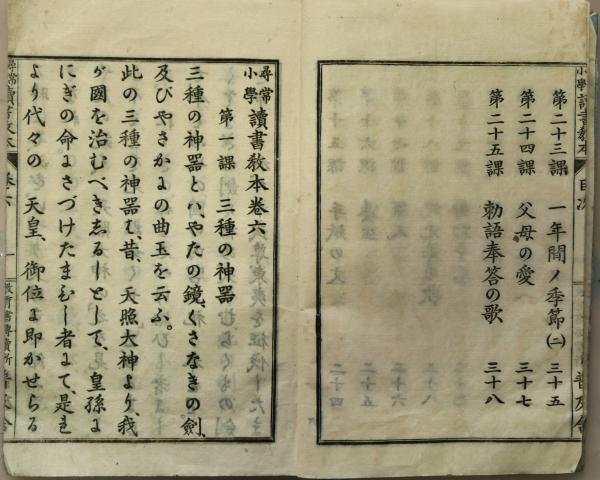 第二十三課 一年間ノ季節(二) 三十五
第二十四課 父母の愛 三十七
第二十五課 勅語奉答の歌 三十八
小學讀書教本 目次
普及舎
尋常小學讀書教本卷六
第一課 三種の神器
三種の神器とハ、やたの鏡、くさなぎの劍、
及びやさかにの曲玉を云ふ。
此の三種の神器む、昔、天照大神より、我
が國を治むべきしるしとして、皇孫に
にぎの命にさづけたまひし者にて、是れ
より代々の 天皇、御位に即かせらる
尋常 讀書教本 卷六
普及舎